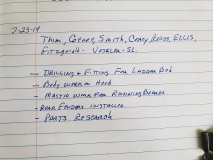 7-23-19
Thom, George, Smith, Corey, ELLIS,
Fitzgerald - Vogler - SL.
- Drilling & Fitting For Ladder Deb
- Body work on Hood
- Mastic work For Running Boards
- Rear Fenders installed
- Parts Research